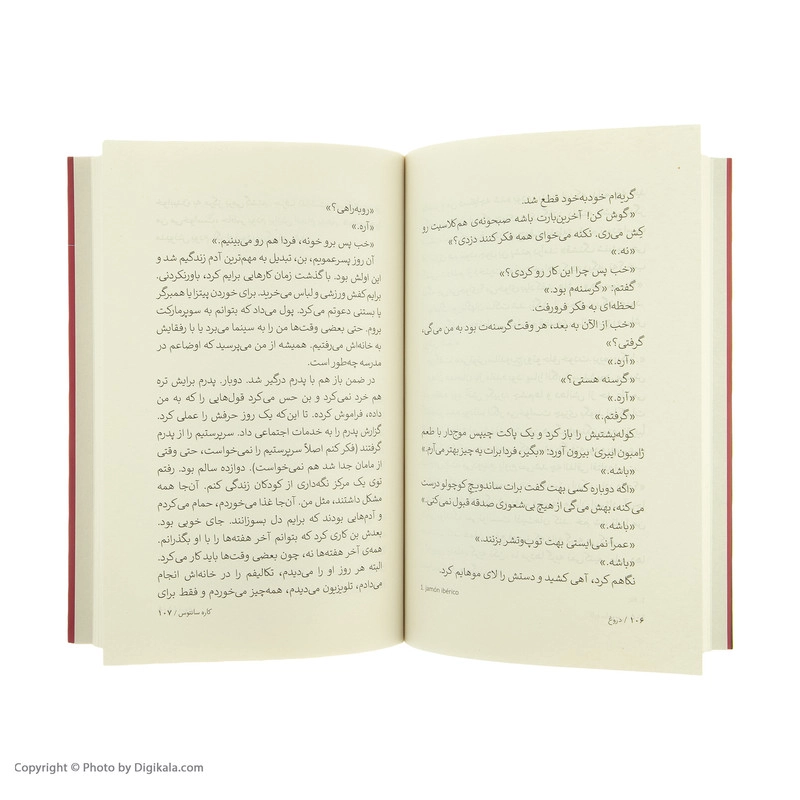 گریه‌ام خودبه‌خود قطع شد.
«گوش کن! آخرین‌بارت باشه صبحونه‌ی هم‌کلاسیت رو
کِش می‌ری. نکنه می‌خوای همه فکر کنند دزدی؟»
«نه.»
«خب پس چرا این کار رو کردی؟»
گفتم: «گرسنه‌م بود.»
لحظه‌ای به فکر فرورفت.
«خب از الآن به بعد، هر وقت گرسنه‌ت بود به من می‌گی،
گرفتی؟»
«آره.»
«گرسنه هستی؟»
«آره.»
«گرفتم.»
کوله‌پشتیش را باز کرد و یک پاکت چیپس موج‌دار با طعم
ژامبون ایبری¹ بیرون آورد: «بگیر، فردا برات یه چیز بهتر می‌آرم.»
«باشه.»
«اگه دوباره کسی بهت گفت برات ساندویچ کوچولو درست
می‌کنه، بهش می‌گی از هیچ بی‌شعوری صدقه قبول نمی‌کنی.»
«باشه.»
«عمراً نمی‌ایستی بهت توپ‌وتشر بزنند.»
«باشه.»
نگاهم کرد، آهی کشید و دستش را لای موهایم کرد.
1. Jamón ibérico
۱۰۶ / دروغ
«روبه‌راهی؟»
«آره.»
«خب پس برو خونه، فردا هم رو می‌بینیم.»
آن روز پسرعمویم، بن، تبدیل به مهم‌ترین آدم زندگیم شد و
این اولش بود. با گذشت زمان کارهایی برایم کرد، باورنکردنی.
برایم کفش ورزشی و لباس می‌خرید. برای خوردن پیتزا یا همبرگر
یا بستنی دعوتم می‌کرد. پول می‌داد که بتوانم به سوپرمارکت
بروم. حتی بعضی وقت‌ها من را به سینما می‌برد یا با رفقایش
به خانه‌اش می‌رفتیم. همیشه از من می‌پرسید که اوضاعم در
مدرسه چه‌طور است.
در ضمن باز هم با پدرم درگیر شد. دوبار. پدرم برایش تره
هم خرد نمی‌کرد و بن حس می‌کرد قول‌هایی را که به من
داده، فراموش کرده. تا این‌که یک روز حرفش را عملی کرد.
گزارش پدرم را به خدمات اجتماعی داد. سرپرستیم را از پدرم
گرفتند (فکر کنم اصلاً سرپرستیم را نمی‌خواست، حتی وقتی
از مامان جدا شد هم نمی‌خواست). دوازده سالم بود. رفتم
توی یک مرکز نگه‌داری از کودکان زندگی کنم. آن‌جا همه
مشکل داشتند، مثل من. آن‌جا غذا می‌خوردم، حمام می‌کردم
و آدم‌هایی بودند که برایم دل بسوزانند. جای خوبی بود.
بعدش بن کاری کرد که بتوانم آخر هفته‌ها را با او بگذرانم.
همه‌ی آخر هفته‌ها نه، چون بعضی وقت‌ها باید کار می‌کرد.
البته هر روز او را می‌دیدم، تکالیفم را در خانه‌اش انجام
می‌دادم، تلویزیون می‌دیدم، همه‌چیز می‌خوردم و فقط برای
کاره سانتوس / ۱۰۷
Copyright © Photo by Digikala.com